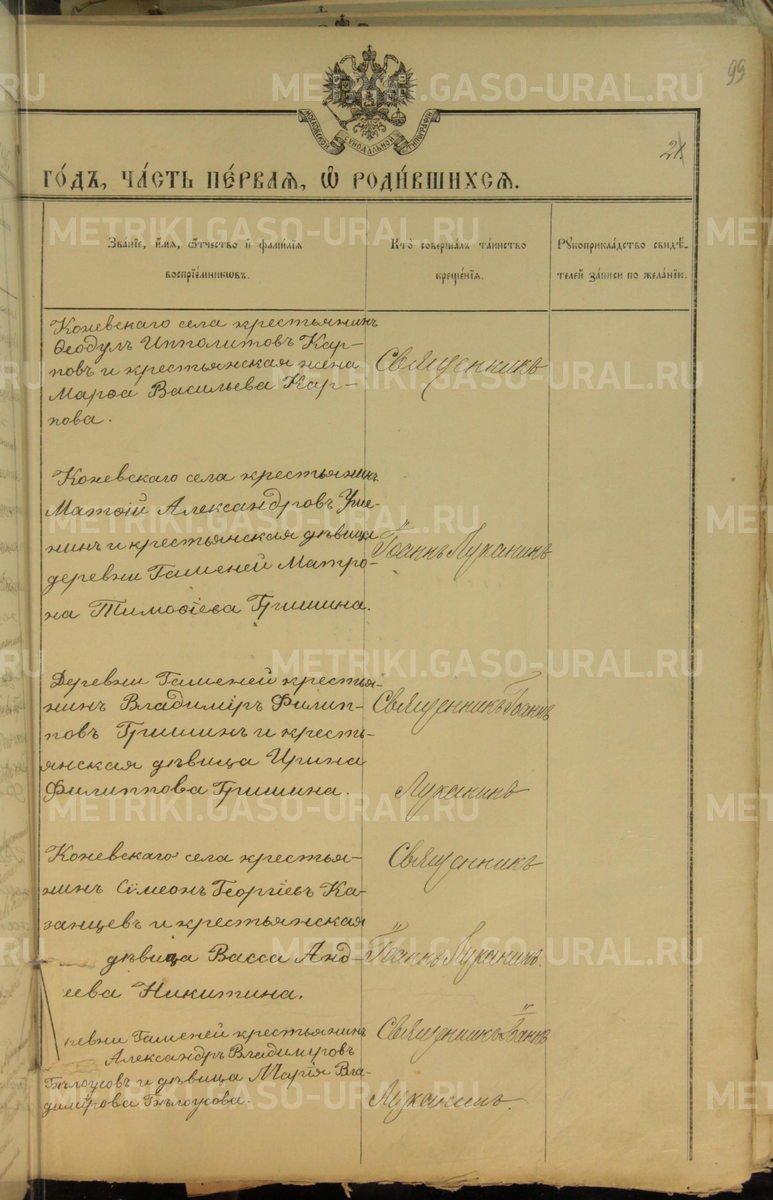 99
МОСКОВСКОЙ СѶНОДАЛЬНОЙ ТИПОГРАФІИ
21.
ГО́ДЪ, ЧА́СТЬ ПЕ́РВАЯ, Ѡ҆ РОДИ́ВШИХСЯ.
Зва́нїе, и҆́мя, ѻ҆́тчество и҆ фами́лїя
воспрїе́мникωвъ.
Кто̀ соверша́лъ та́инство
креще́нїя.
Рꙋкоприкла́дство свидѣ́-
телей за́писи по жела́нїю.
Коневскаго села крестьянинъ
Ѳеодулъ Ипполитовъ Кар-
повъ и крестьянская жена
Марѳа Васильева Кар-
пова.
Священникъ
Коневскаго села крестьянинъ
Матѳій Александровъ
и крестьянская дѣвица
деревни Гаменей Матро-
на Тимоѳіева Гришина.
Іоаннъ Луканинъ
Деревни Гаменей крестья-
нинъ Владиміръ Филип-
повъ Гришинъ и кресть-
янская дѣвица Ирина
Филиппова Гришина.
Священникъ Іоаннъ
Луканинъ
Коневскаго села крестья-
нинъ Сѵмеонъ Георгіевъ Ка-
занцевъ и крестьянская
дѣвица Васса Анд-
еева Никитина.
Священникъ
Іоаннъ Луканинъ.
ревни Гаменей крестьянинъ
Александръ Владимировъ
Бѣлоусовъ и дѣвица Марія Вла-
димірова Бѣлоусова.
Священникъ Іоаннъ
Луканинъ.
METRIKI.GASO-URAL.RU